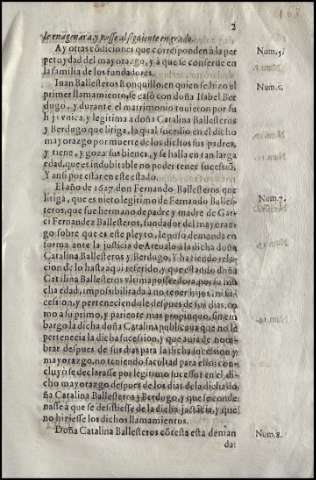 2
se enagenara, y passe al siguiente en grado.
Ay otras cõdiciones que corresponden à la per
petuydad del mayorazgo, y à que se conserue en
la familia de los fundadores.
Num.5.
Iuan Ballesteros Ronquillo, en quien se hizo el
primer llamamiento, se casò con doña Isabel Ber
dugo, y durante el matrimonio tuuieron por su
hija vnica, y legitima a doña Catalina Ballesteros
y Berdugo que litiga, la qual sucedio en el dicho
mayorazgo por muerte de los dichos sus padres,
y tiene, y goza sus bienes, y se halla en tan larga
edad, que es indubitable no poder tener sucession.
Y ansi por estar en este estado.
Num.6.
El año de 1627. don Fernando Ballesteros que
litiga, que es nieto legitimo de Fernando Balles-
teros, que fue hermano de padre y madre de Gar-
ci Fernandez Ballesteros, fundador del mayoraz-
go sobre que es este pleyto, le puso demanda en
forma ante la justicia de Areualo a la dicha doña
Catalina Ballesteros y Berdugo. Y haziendo rela-
cion de lo hasta aqui referido, y que estando doña
Catalina Ballesteros vltima possedora, por su mu
cha edad, impossibilitada à no tener hijos, ni su-
cession, y perteneciendole despues de sus dias, co
mo a su primo, y pariente mas propinquo, sin em
bargo la dicha doña Catalina publicaua que no le
pertenecia la dicha sucession, y que auia de nom-
brar despues de sus dias para la dicha sucession y
mayorazgo, no teniendo facultad para ello: con
cluyò se declarasse por legitimo sucessor en el di-
cho mayorazgo despues de los dias de la dicha do
ña Catalina Ballesteros y Berdugo, y que se conde
nasse à que se desistiesse de la dicha jactãcia, y que
no hiziesse los dichos llamamientos.
Num.7.
Doña Catalina Ballesteros cõtesta esta deman
da:
Num.8.